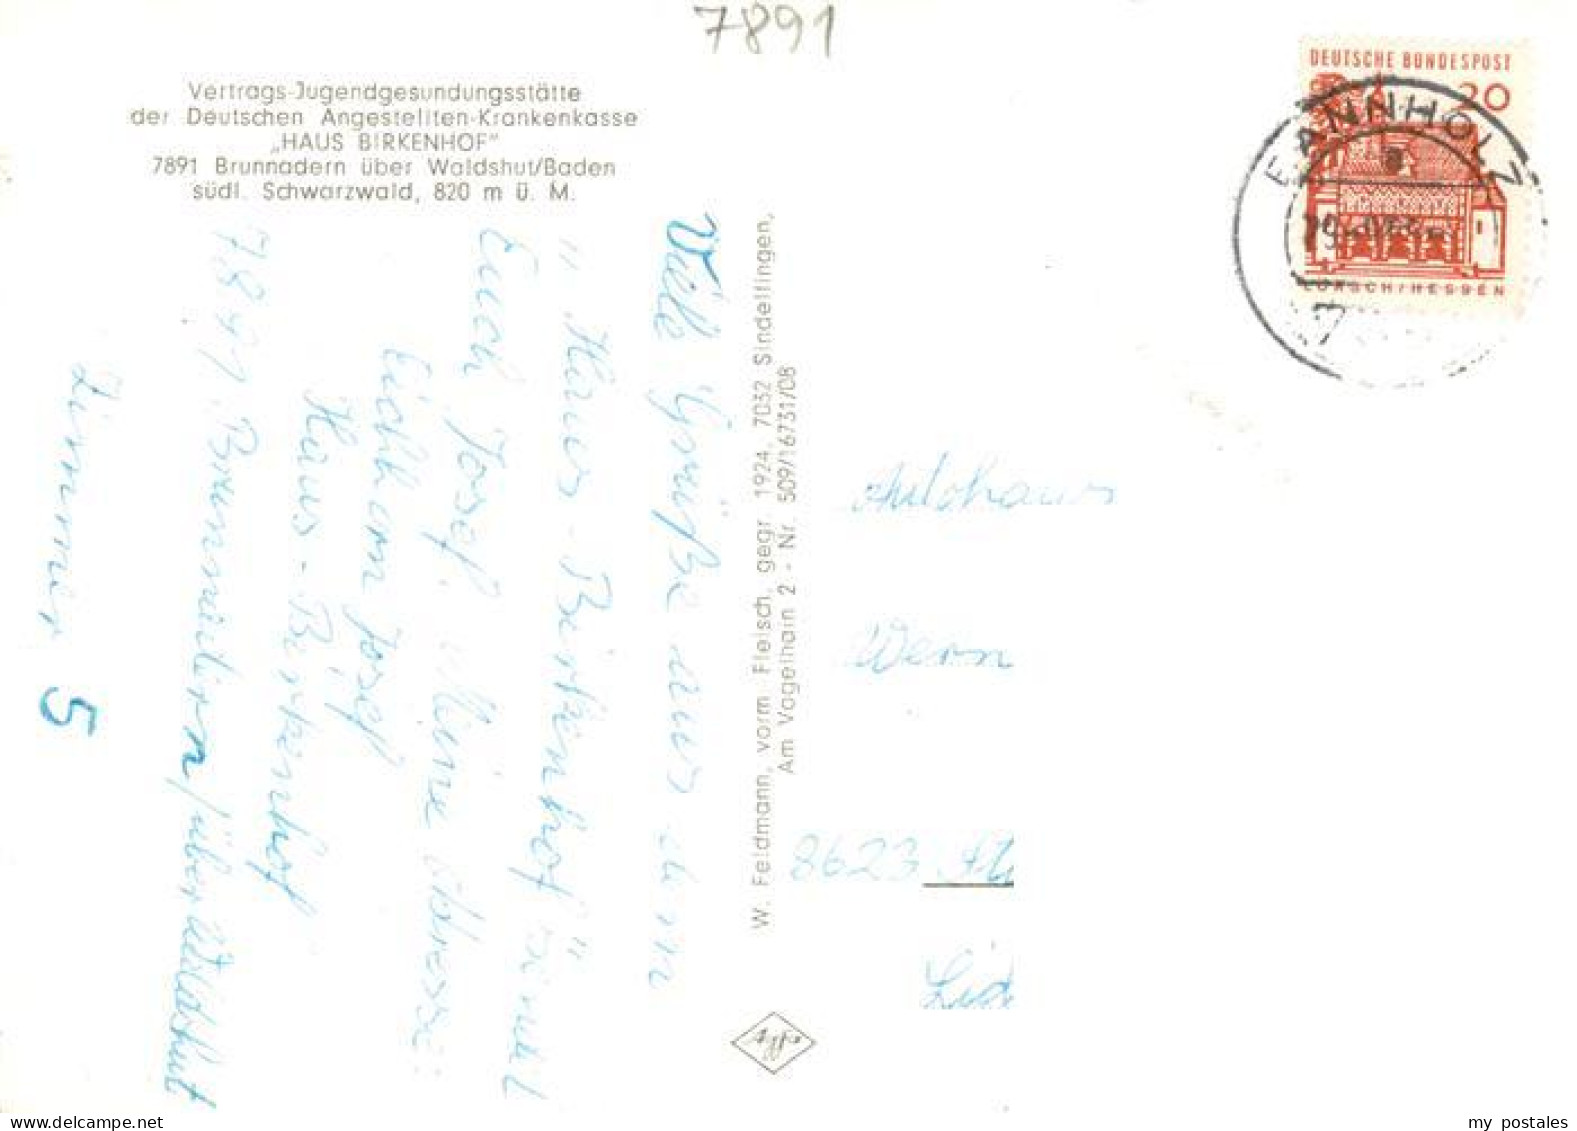 7891
Vertrags-Jugendgesundungsstätte
der Deutschen Angestellten-Krankenkasse
„HAUS BIRKENHOF"
7891 Brunnadern über Waldshut/Baden
südl. Schwarzwald, 820 m ü. M.
Viele Grüße aus dem
„Haus-Birkenhof" sendet
Euch Josef. Meine Adresse:
Eichhorn Josef
Haus-Birkenhof
7891 Brunnadern/über Waldshut
Zimmer 5
W. Feldmann, vorm. Fleisch, gegr. 1924, 7032 Sindelfingen,
Am Vogelhain 2 - Nr. 509/16731/08
DEUTSCHE BUNDESPOST
20
LORSCH/HESSEN
ANNHOLZ
a
Autohaus
Wern
8623
my postales